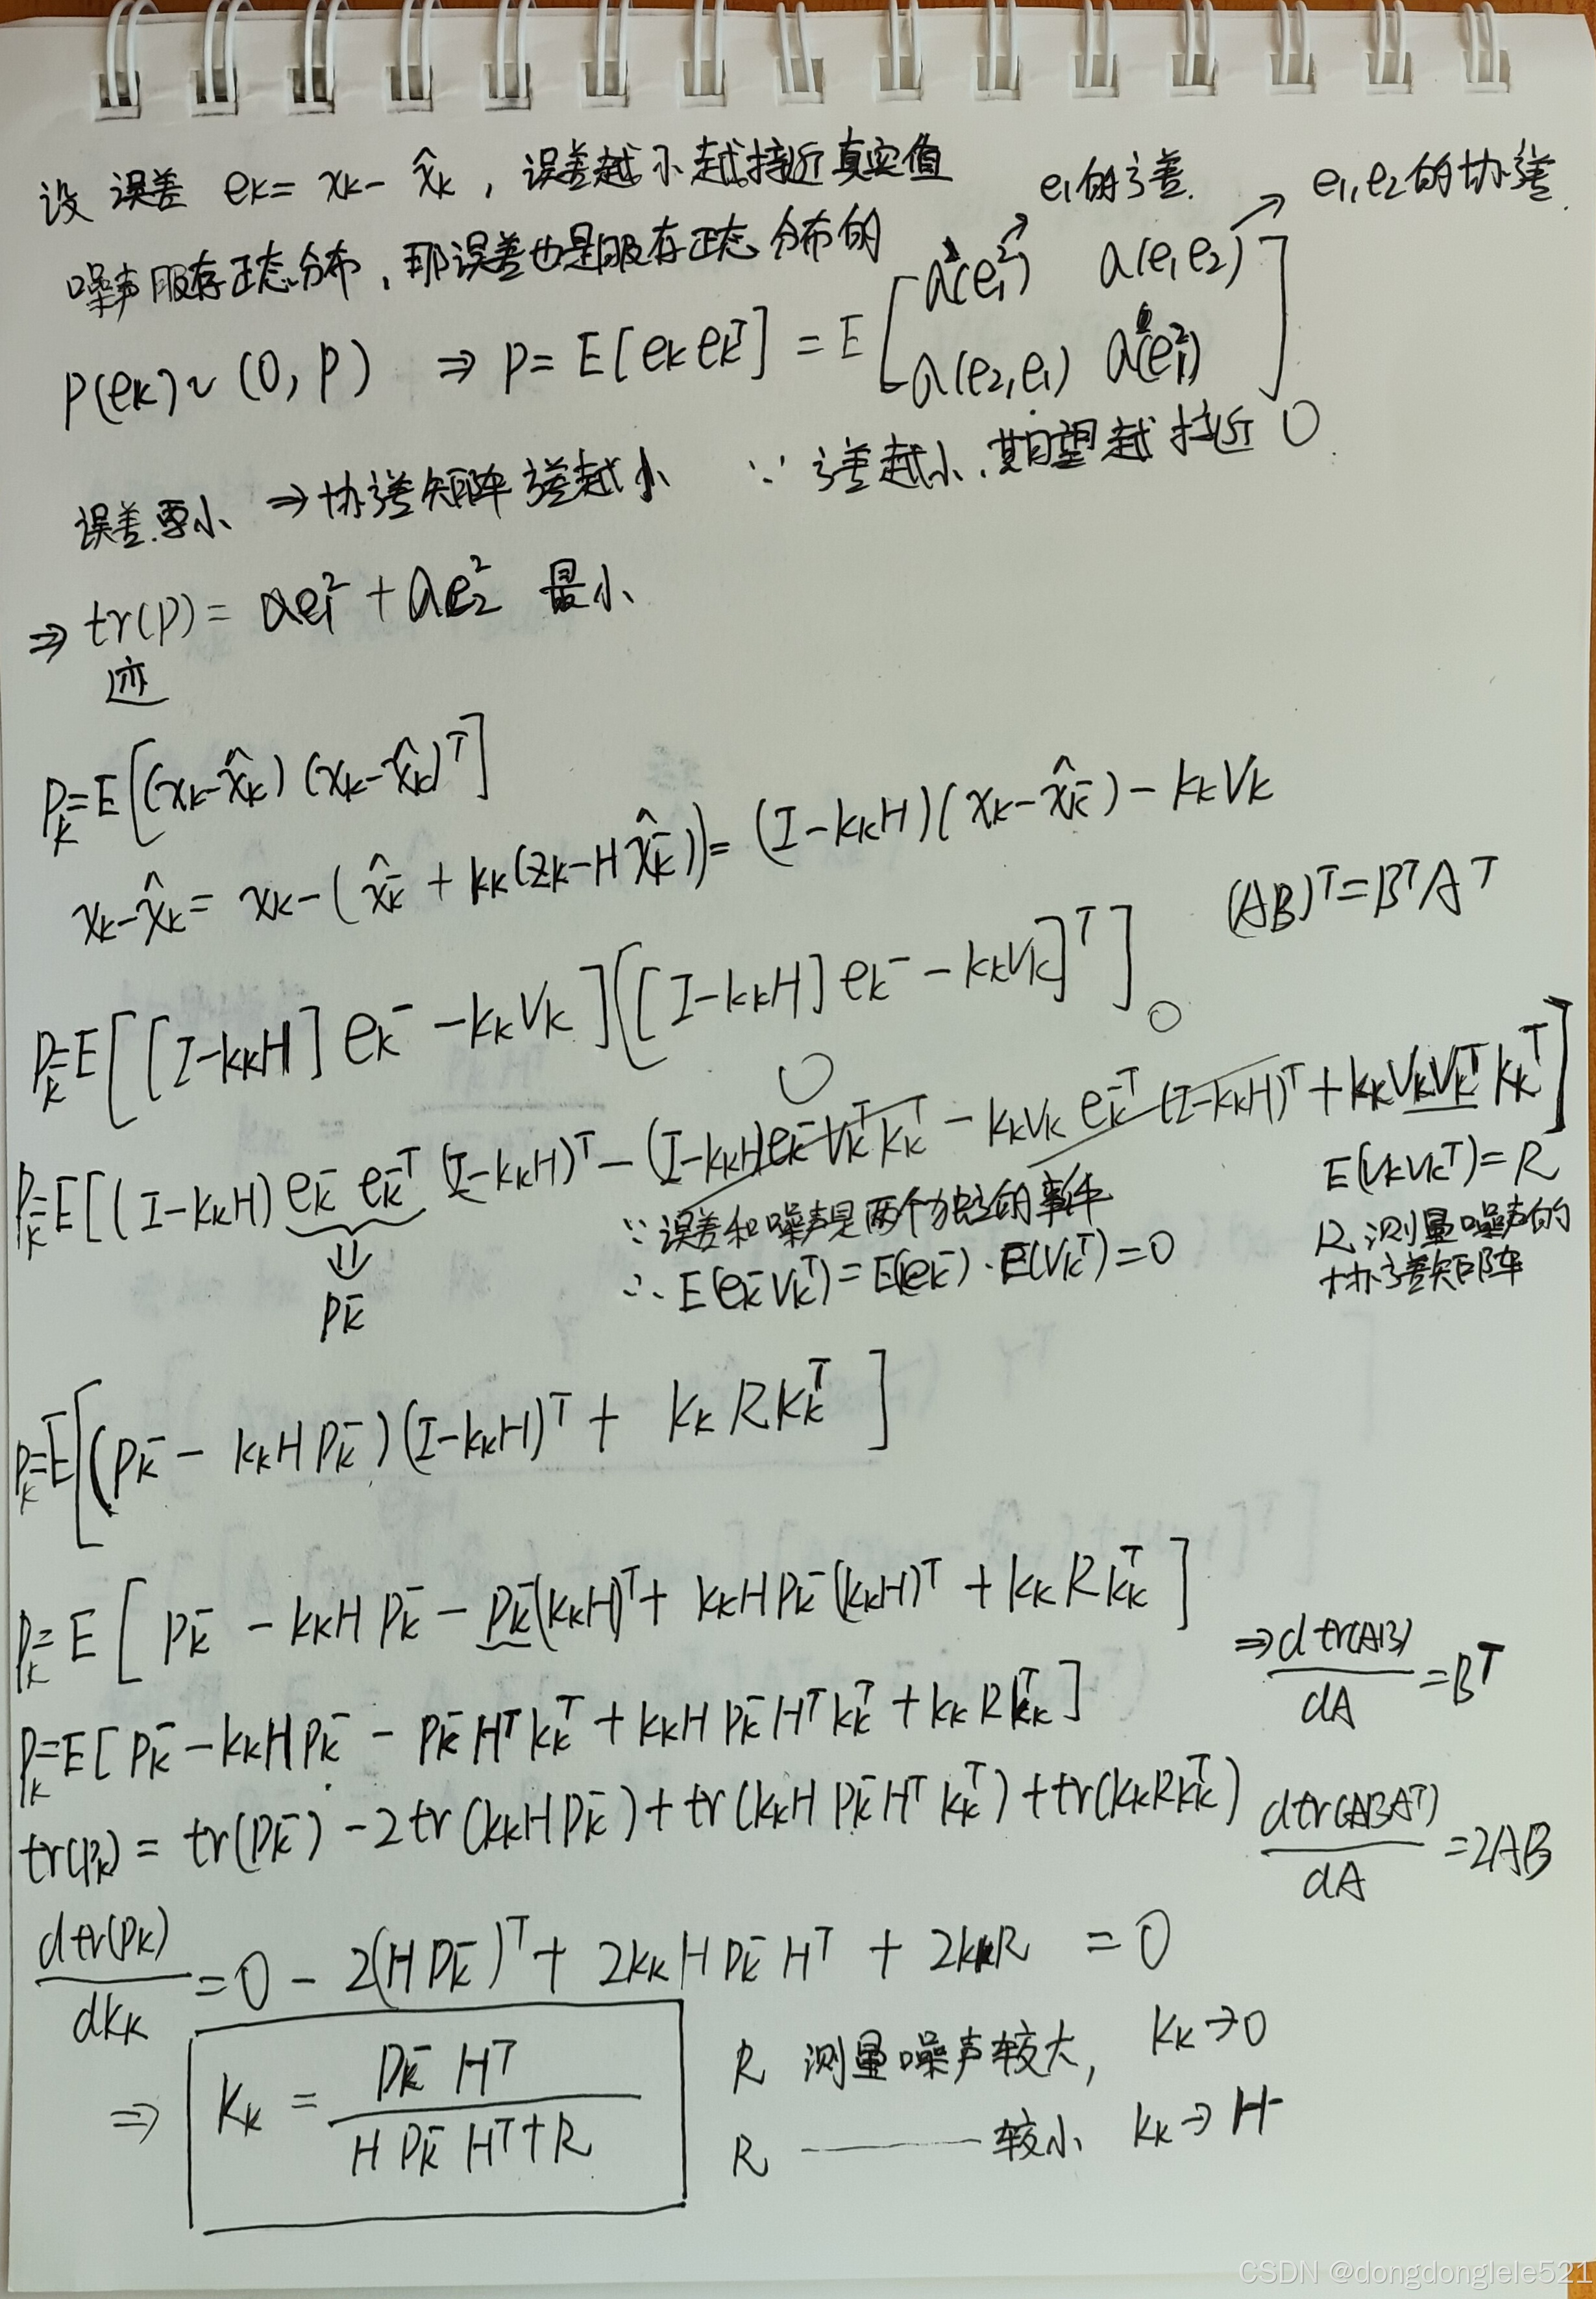 设 误差 eₖ = xₖ - x̂ₖ , 误差越小越接近真实值
e₁的方差. e₁,e₂的协方差.
噪声服存正态分布，那误差也是服存正态分布的
P(eₖ) ~ (0, P) ⇒ P = E[eₖeₖᵀ] = E [ a²(e₁²) a(e₁e₂)
a(e₂,e₁) a(e₁²) ]
误差要小 ⇒ 协方差矩阵方差越小 ∵ 方差越小，期望越接近 0
⇒ tr(P) = ae₁² + ae₂² 最小
迹
Pₖ = E[(xₖ-x̂ₖ)(xₖ-x̂ₖ)ᵀ]
xₖ-x̂ₖ = xₖ-(x̂ₖ⁻ + kₖ(zₖ-Hx̂ₖ⁻)) = (I-kₖH)(xₖ-x̂ₖ⁻) - kₖVₖ
(AB)ᵀ = BᵀAᵀ
Pₖ = E[[I-kₖH]eₖ⁻ - kₖVₖ][[I-kₖH]eₖ⁻ - kₖVₖ]ᵀ]
0 0
Pₖ = E[(I-kₖH)eₖ⁻eₖ⁻ᵀ(I-kₖH)ᵀ - (I-kₖH)eₖ⁻Vₖᵀkₖᵀ - kₖVₖeₖ⁻ᵀ(I-kₖH)ᵀ + kₖVₖVₖᵀkₖᵀ]
⇓
Pₖ⁻
∵ 误差和噪声是两个独立的事件
∴ E(eₖ⁻Vₖᵀ) = E(eₖ⁻)·E(Vₖᵀ) = 0
E(VₖVₖᵀ) = R
R 测量噪声的
协方差矩阵
Pₖ = E[(Pₖ⁻ - kₖHPₖ⁻)(I-kₖH)ᵀ + kₖRkₖᵀ]
Pₖ = E[Pₖ⁻ - kₖHPₖ⁻ - Pₖ⁻(kₖH)ᵀ + kₖHPₖ⁻(kₖH)ᵀ + kₖRkₖᵀ]
⇒ dtr(AB)/dA = Bᵀ
Pₖ = E[Pₖ⁻ - kₖHPₖ⁻ - Pₖ⁻Hᵀkₖᵀ + kₖHPₖ⁻Hᵀkₖᵀ + kₖRkₖᵀ]
tr(Pₖ) = tr(Pₖ⁻) - 2tr(kₖHPₖ⁻) + tr(kₖHPₖ⁻Hᵀkₖᵀ) + tr(kₖRkₖᵀ)
dtr(ABAᵀ)/dA = 2AB
dtr(Pₖ)/dkₖ = 0 - 2(HPₖ⁻)ᵀ + 2kₖHPₖ⁻Hᵀ + 2kₖR = 0
⇒ Kₖ = Pₖ⁻Hᵀ / (HPₖ⁻Hᵀ+R)
R 测量噪声较大, kₖ → 0
R —— 较小 kₖ → H⁻
CSDN @dongdonglele521